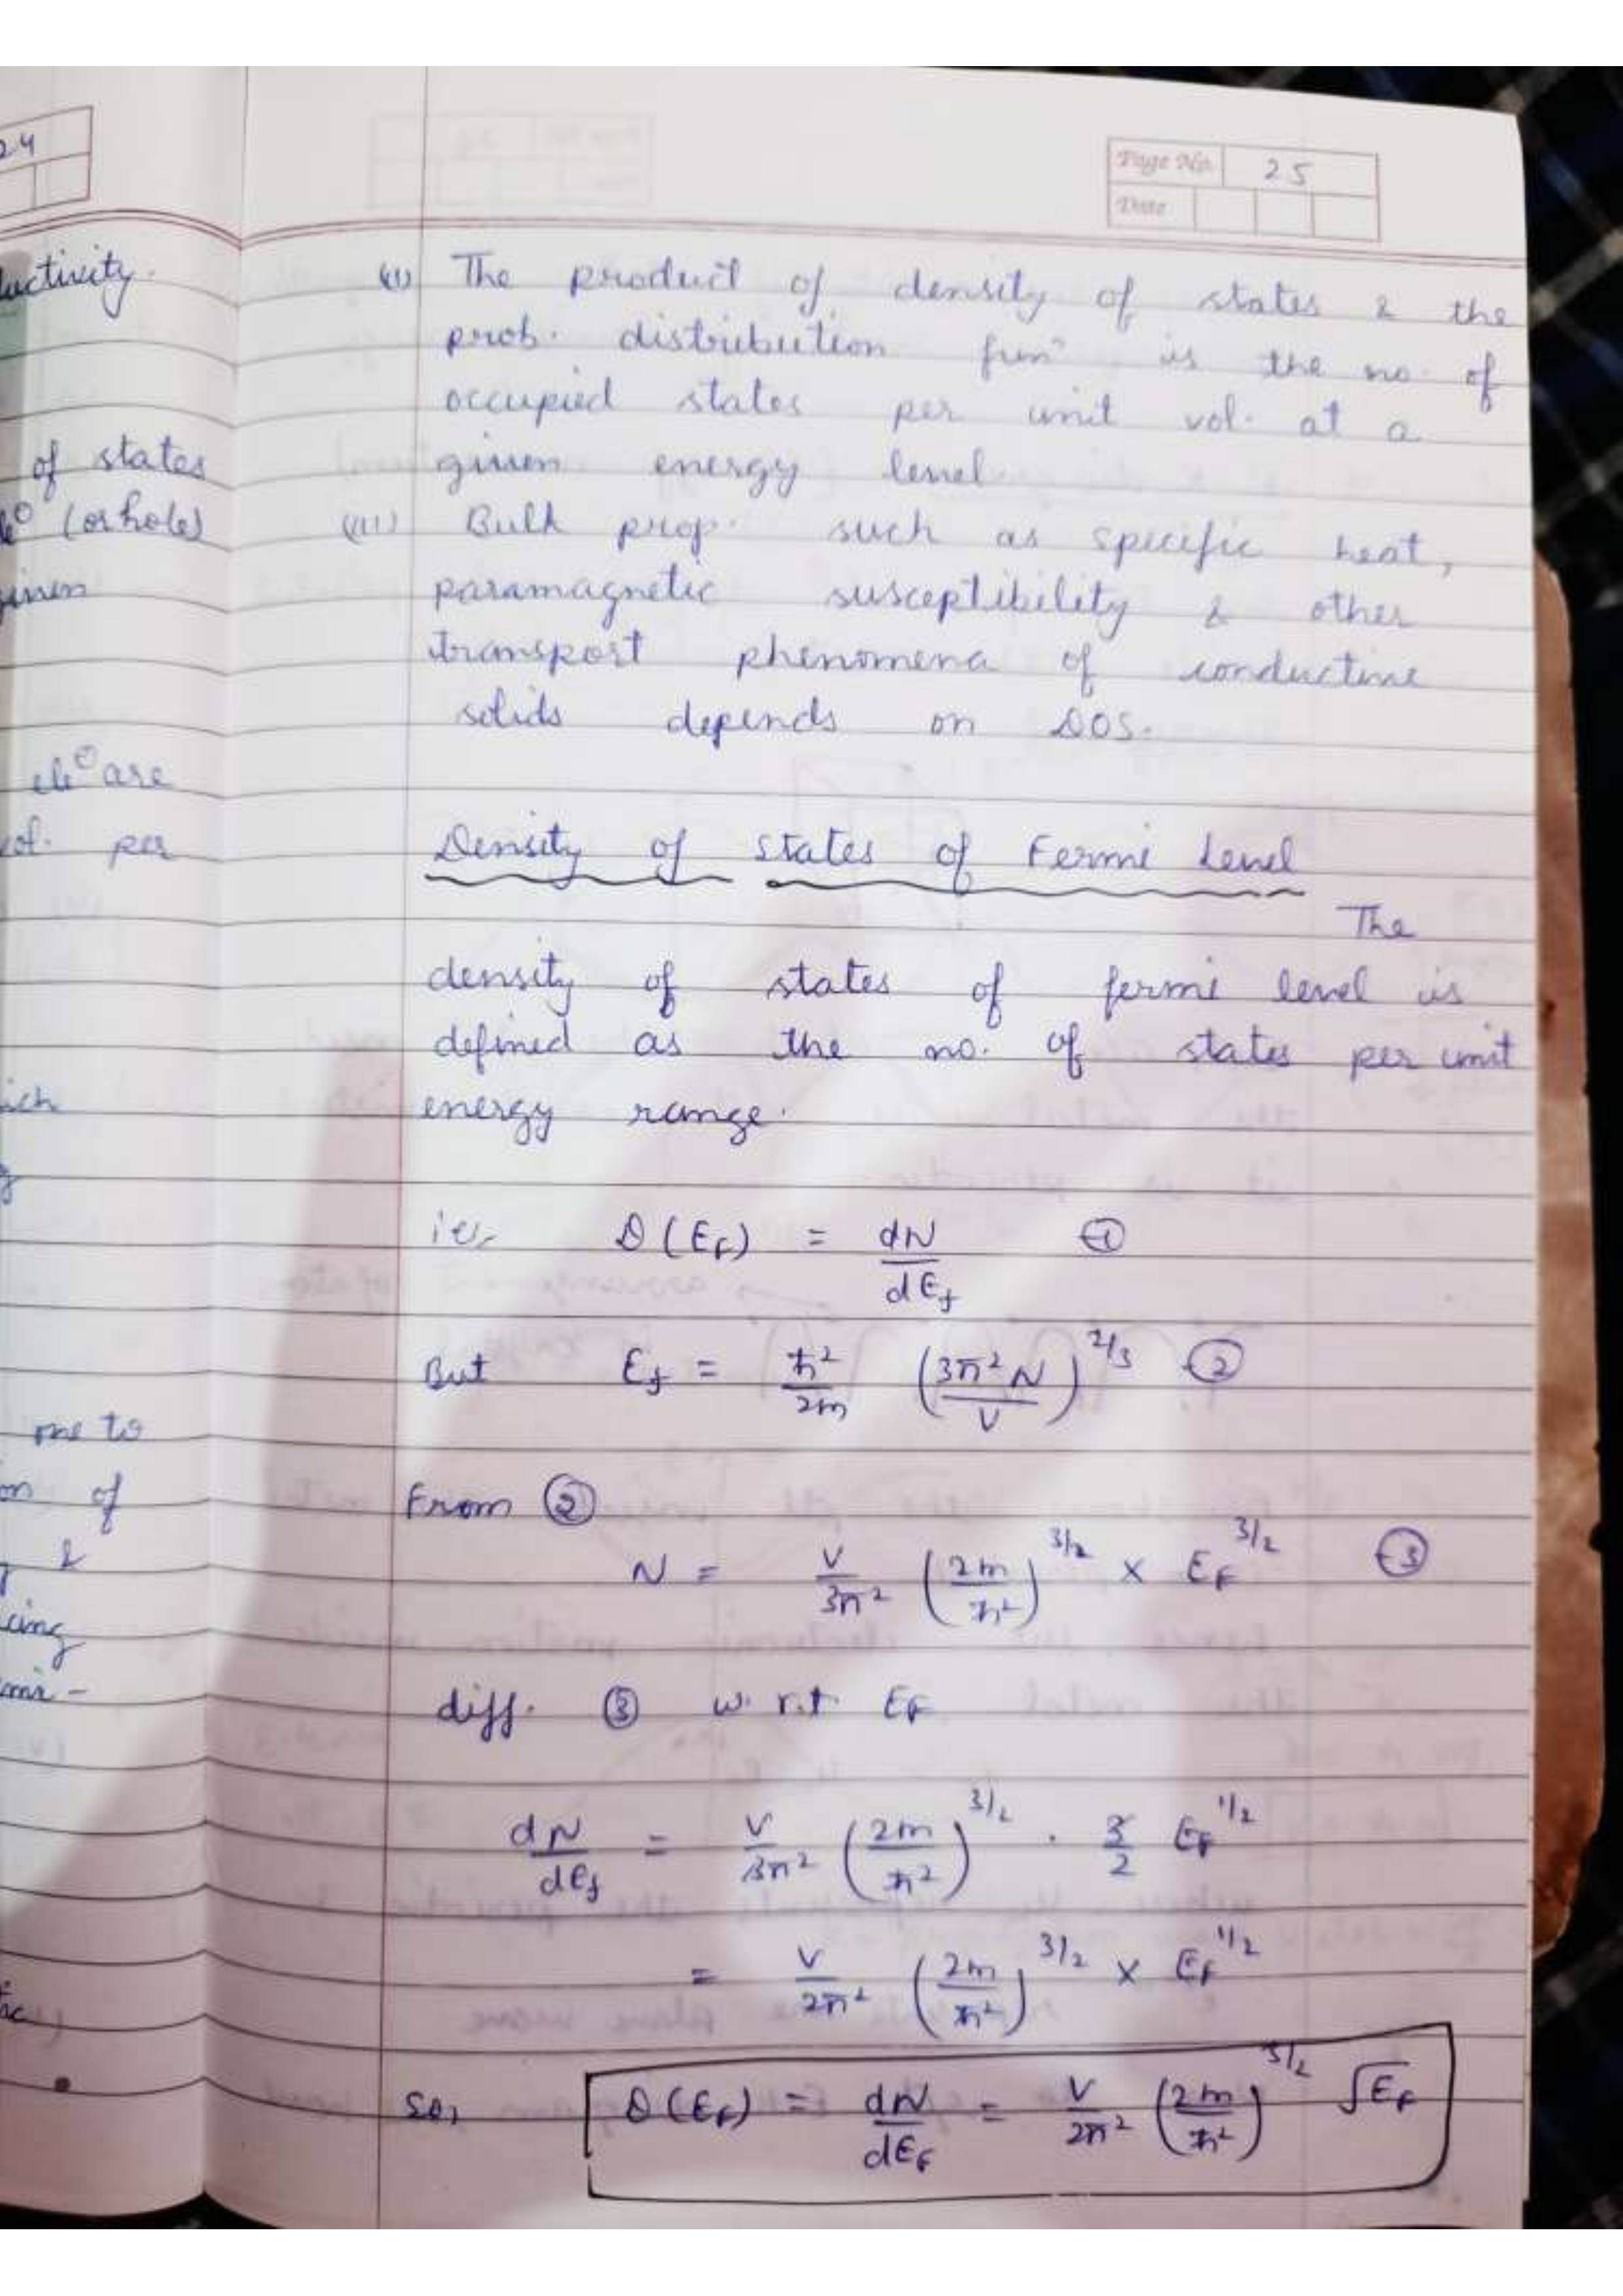 24
Page No. 25
Date
uctivity.
of states
(or hole)
ele⊖ are
vol. per
me to
on of
&
(ii) The product of density of states & the
prob. distribution funⁿ is the no. of
occupied states per unit vol. at a
given energy level.
(iii) Bulk prop. such as specific heat,
paramagnetic susceptibility & other
transport phenomena of conductive
solids depends on DOS.
Density of states of Fermi Level
The
density of states of fermi level is
defined as the no. of states per unit
energy range.
i.e., D(E_F) = dN/dE_f —①
But E_f = ħ²/2m (3π²N/V)^2/3 —②
From ②
N = V/3π² (2m/ħ²)^3/2 × E_F^3/2 —③
diff. ③ w.r.t. E_F
dN/dE_f = V/3π² (2m/ħ²)^3/2 · 3/2 E_F^1/2
= V/2π² (2m/ħ²)^3/2 × E_F^1/2
So, D(E_F) = dN/dE_F = V/2π² (2m/ħ²)^3/2 √E_F